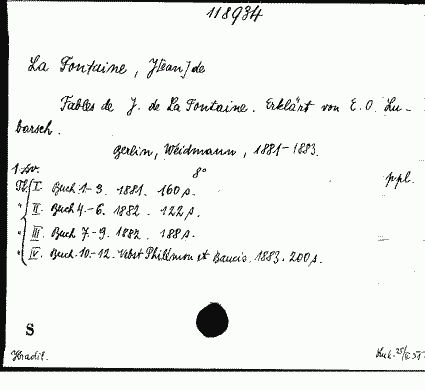 118934
La Fontaine, J[ean] de
Fables de J. de La Fontaine. Erklärt von E. O. Lu-
barsch.
Berlin, Weidmann, 1881-1883.
8°
1 Bv. ppl.
Tl. I. Buch 1-3. 1881. 160 s.
" II. Buch 4.-6. 1882. 122 s.
" III. Buch 7-9. 1882. 188 s.
" IV. Buch. 10-12. Nebst Philémon et Baucis. 1883. 200 s.
S
Hradil.